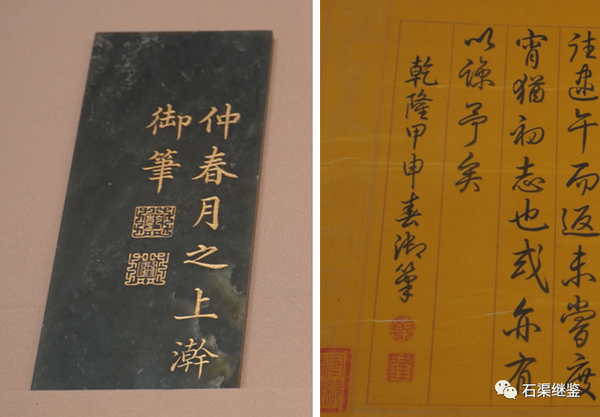 仲春月之上澣
御筆
往逮午而返未嘗度
宵猶初志也或亦有
以諒予矣
乾隆甲申春御筆
石渠继鉴